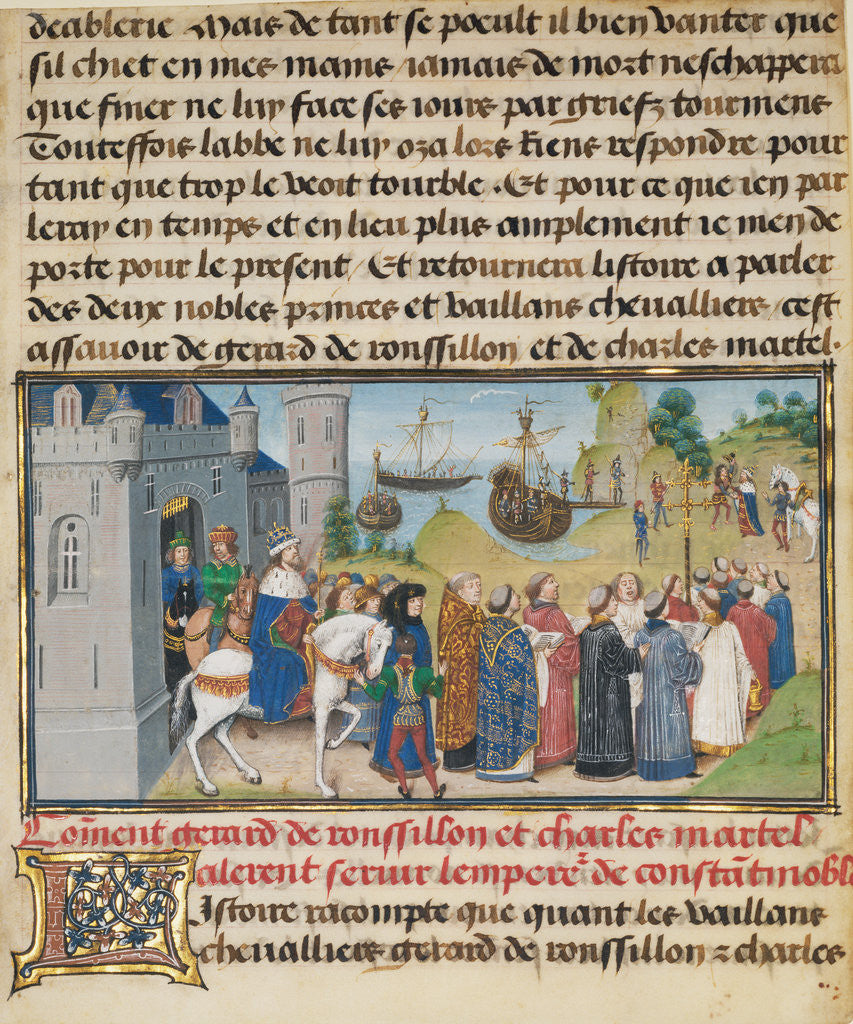 deablerie Mais de tant se poeult il bien vanter que
sil chiet en mes mains iamais de mort neschappera
que finer ne luy face ses iours par griefz tourmens
Touteffois labbe ne luy oza lors riens respondre pour
tant que trop le veoit tourble. Et pour ce que ien par
leray en temps et en lieu plus amplement ie men de
porte pour le present / Et retournera listoire a parler
des deux nobles princes et vaillans chevalliers / cest
assavoir de gerard de ronssillon et de charles martel.
Com̄ent gerard de ronssillon et charles martel
alerent servir lempereᷣ de constātinoble
LIstoire racompte que quant les vaillans
chevalliers gerard de ronssillon ⁊ charles